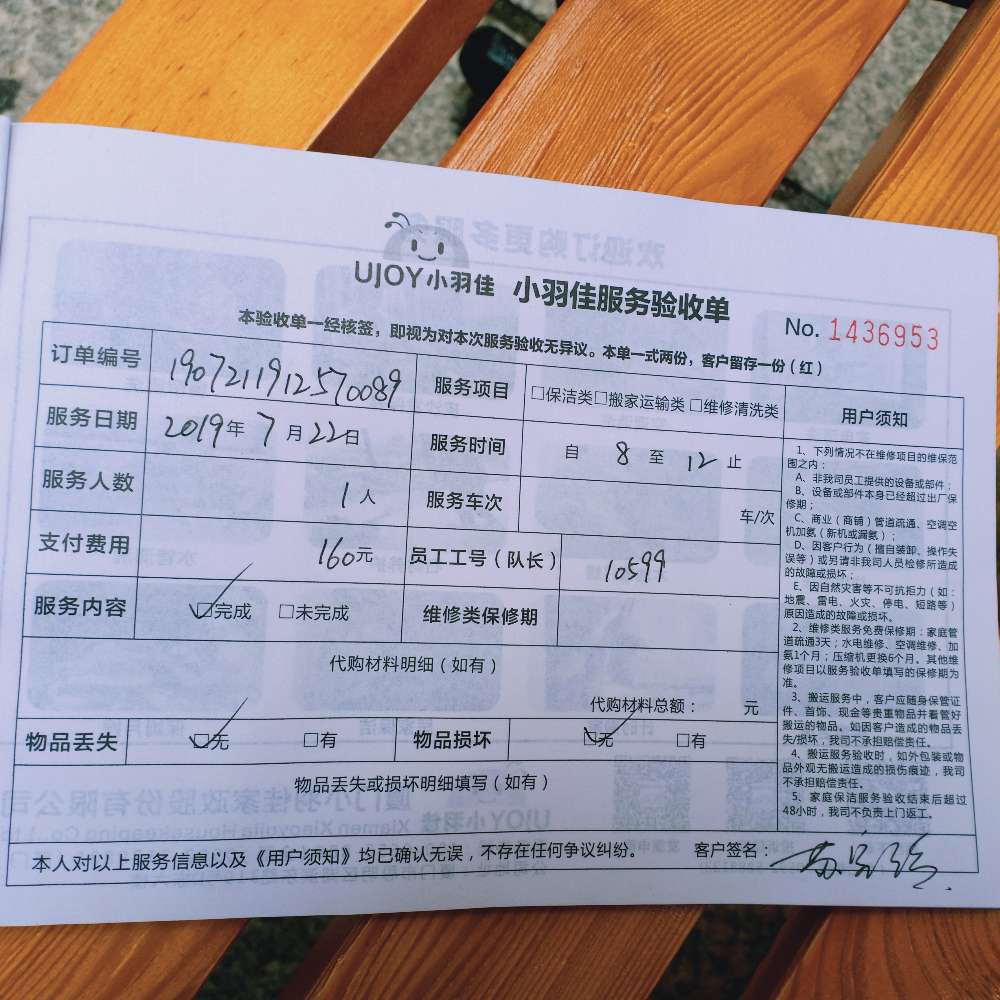 UJOY小羽佳 小羽佳服务验收单
No. 1436953
本验收单一经核签，即视为对本次服务验收无异议。本单一式两份，客户留存一份（红）
订单编号 1907211912570089 服务项目 □保洁类□搬家运输类□维修清洗类
服务日期 2019年7月22日 服务时间 自 8 至 12 止
服务人数 1人 服务车次 车/次
支付费用 160元 员工工号（队长） 10599
服务内容 ☑完成 □未完成 维修类保修期
代购材料明细（如有）
代购材料总额： 元
物品丢失 ☑无 □有 物品损坏 ☑无 □有
物品丢失或损坏明细填写（如有）
用户须知
1、下列情况不在维修项目的维保范
围之内：
A、非我司员工提供的设备或部件；
B、设备或部件本身已经超过出厂保
修期；
C、商业（商铺）管道疏通、空调空
机加氨（新机或漏氨）；
D、因客户行为（擅自装卸、操作失
误等）或另请非我司人员检修所造成
的故障或损坏；
E、因自然灾害等不可抗拒力（如：
地震、雷电、火灾、停电、短路等）
原因造成的故障或损坏。
2、维修类服务免费保修期：家庭管
道疏通3天；水电维修、空调维修、加
氨1个月；压缩机更换6个月。其他维
修项目以服务验收单填写的保修期为
准。
3、搬运服务中，客户应随身保管证
件、首饰、现金等贵重物品并看管好
搬运的物品。如因客户造成的物品丢
失/损坏，我司不承担赔偿责任。
4、搬运服务验收时，如外包装或物
品外观无搬运造成的损伤痕迹，我司
不承担赔偿责任。
5、家庭保洁服务验收结束后超过
48小时，我司不负责上门返工。
本人对以上服务信息以及《用户须知》均已确认无误，不存在任何争议纠纷。 客户签名：